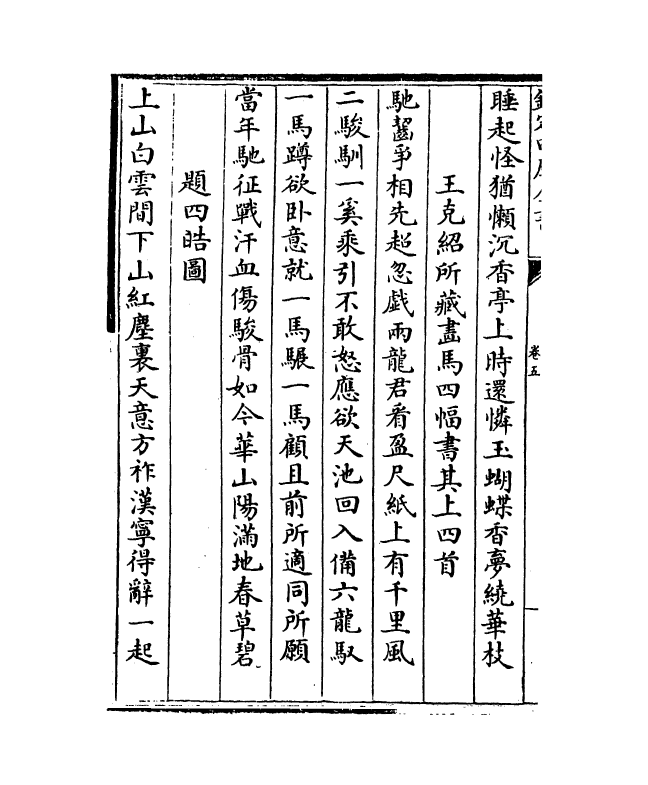 欽定四庫全書
卷五
睡起怪猶懶沉香亭上時還憐玉蝴蝶香夢繞華枝
王克紹所藏畫馬四幅書其上四首
馳齧爭相先超忽戲兩龍君看盈尺紙上有千里風
二駿馴一奚乘引不敢怒應欲天池回入備六龍馭
一馬蹲欲卧意就一馬騣一馬顧且前所適同所願
當年馳征戰汗血傷駿骨如今華山陽滿地春草碧
題四皓圖
上山白雲間下山紅塵裏天意方祚漢寧得辭一起